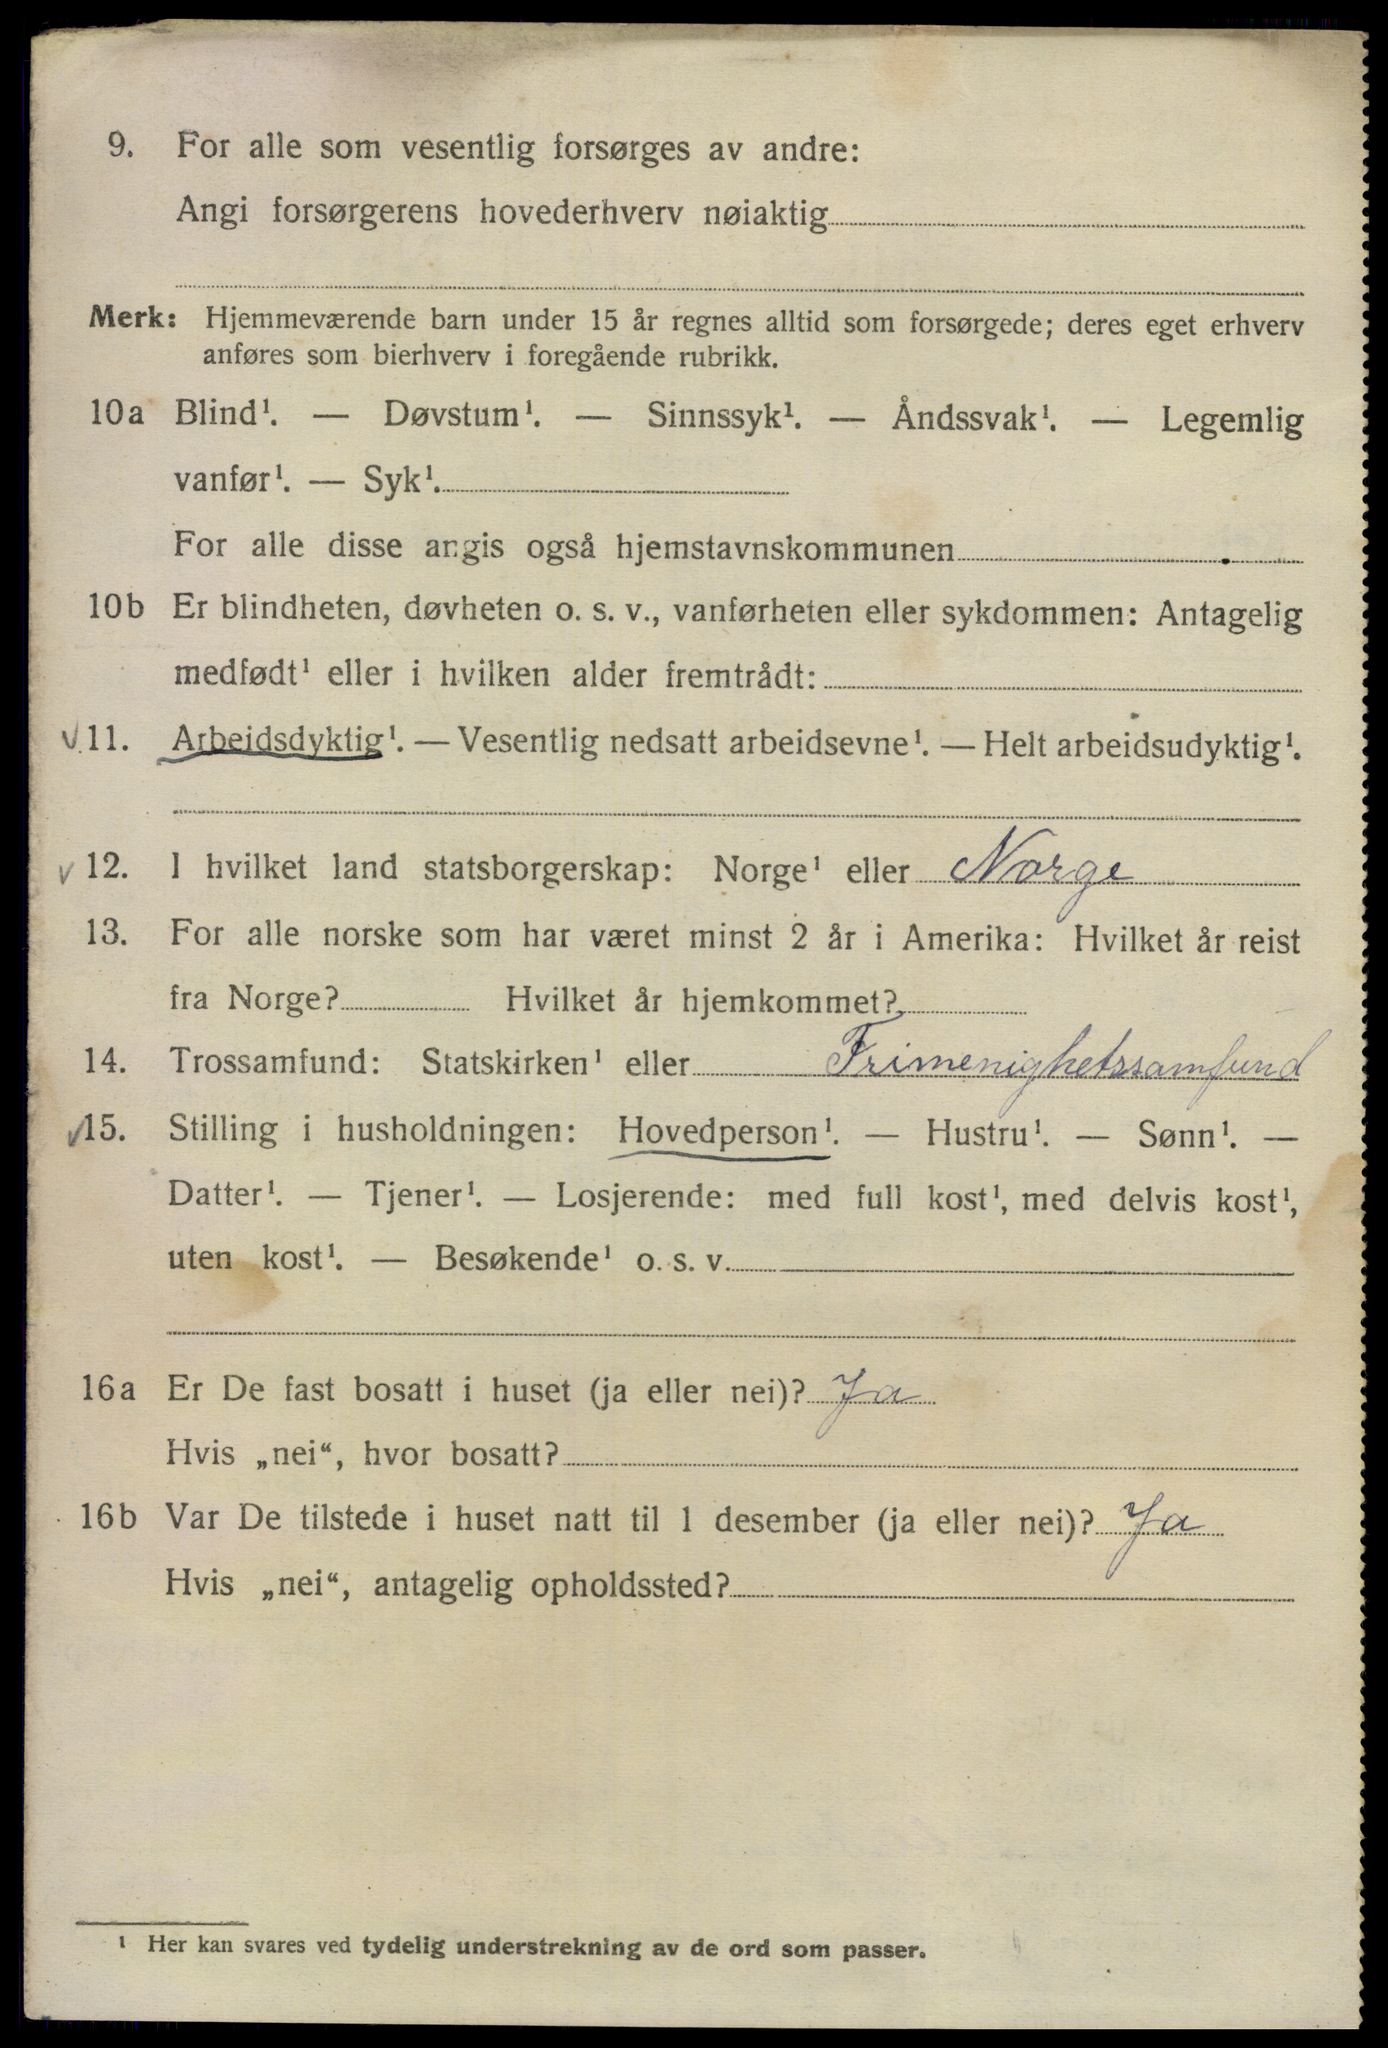 9. For alle som vesentlig forsørges av andre:
Angi forsørgerens hovederhverv nøiaktig
Merk: Hjemmeværende barn under 15 år regnes alltid som forsørgede; deres eget erhverv
anføres som bierhverv i foregående rubrikk.
10a Blind¹. — Døvstum¹. — Sinnssyk¹. — Åndssvak¹. — Legemlig
vanfør¹. — Syk¹.
For alle disse angis også hjemstavnskommunen
10b Er blindheten, døvheten o. s. v., vanførheten eller sykdommen: Antagelig
medfødt¹ eller i hvilken alder fremtrådt:
v 11. Arbeidsdyktig¹. — Vesentlig nedsatt arbeidsevne¹. — Helt arbeidsudyktig¹.
v 12. I hvilket land statsborgerskap: Norge¹ eller Norge
13. For alle norske som har været minst 2 år i Amerika: Hvilket år reist
fra Norge? Hvilket år hjemkommet?
14. Trossamfund: Statskirken¹ eller Frimenighetssamfund
v 15. Stilling i husholdningen: Hovedperson¹. — Hustru¹. — Sønn¹. —
Datter¹. — Tjener¹. — Losjerende: med full kost¹, med delvis kost¹,
uten kost¹. — Besøkende¹ o. s. v.
16a Er De fast bosatt i huset (ja eller nei)? Ja
Hvis „nei“, hvor bosatt?
16b Var De tilstede i huset natt til 1 desember (ja eller nei)? Ja
Hvis „nei“, antagelig opholdssted?
¹ Her kan svares ved tydelig understrekning av de ord som passer.